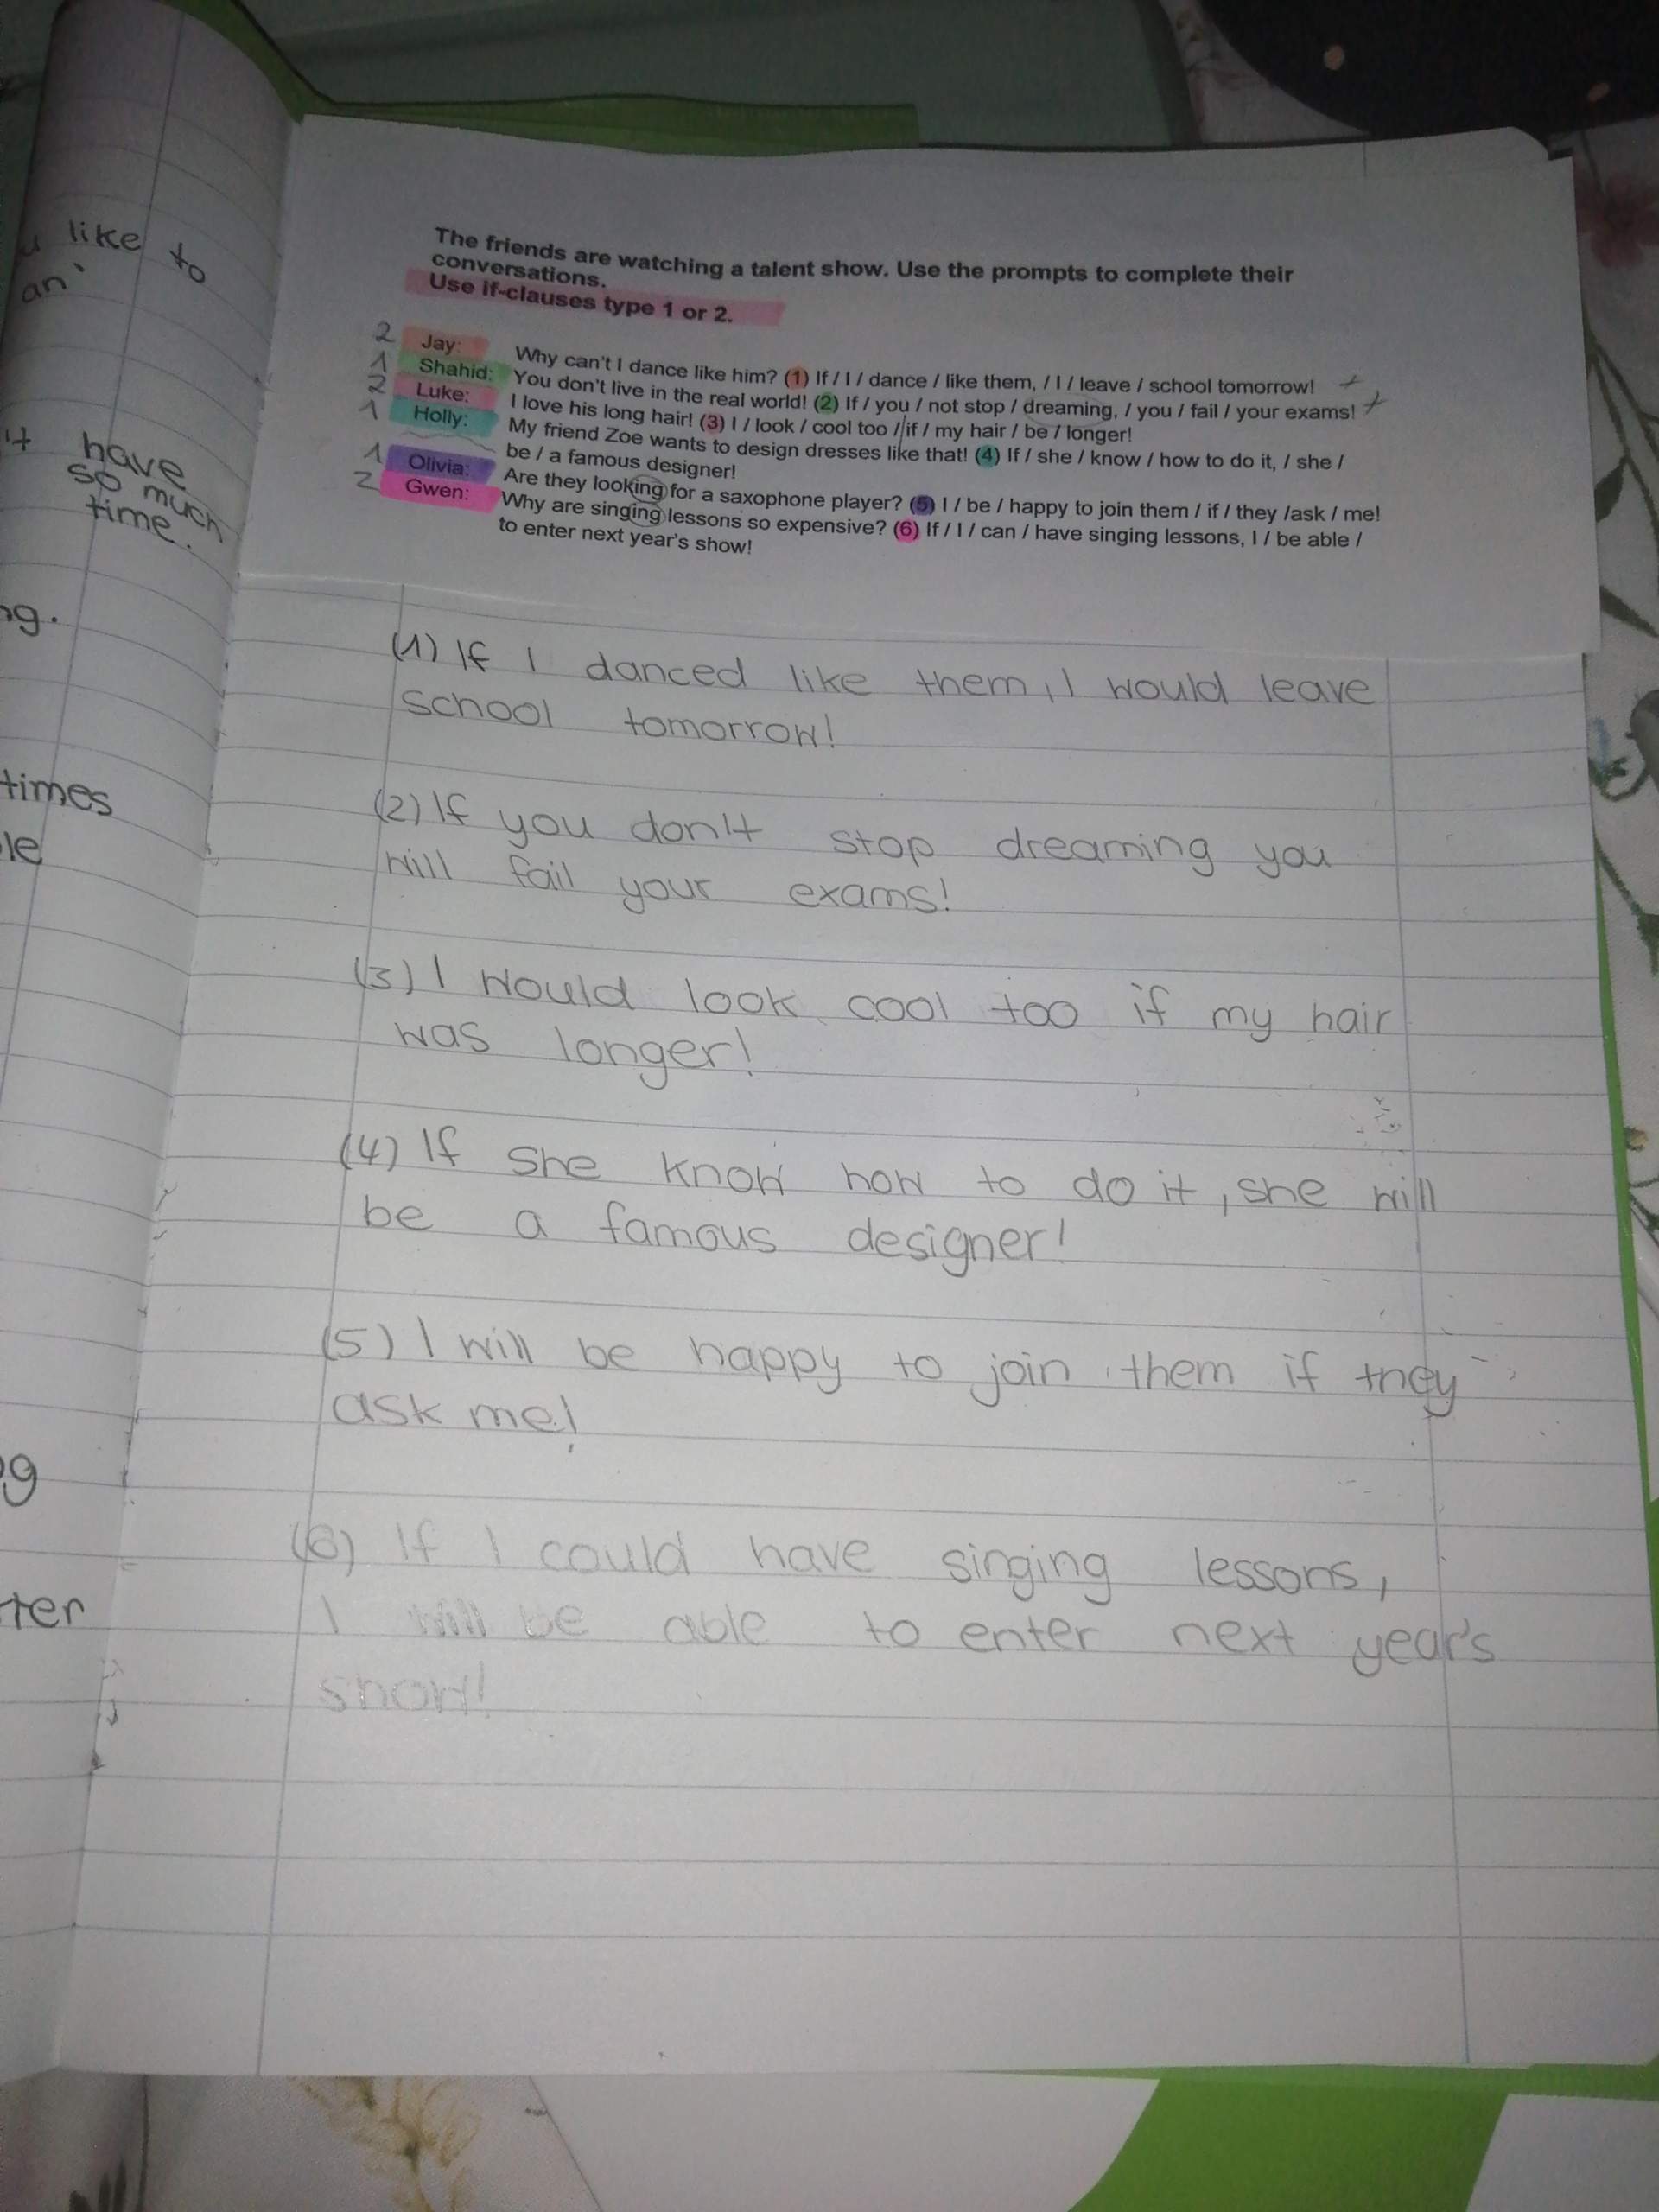 like to
an'
have
so much
time.
times
The friends are watching a talent show. Use the prompts to complete their
conversations.
Use if-clauses type 1 or 2.
2 Jay: Why can't I dance like him? (1) If / I / dance / like them, / I / leave / school tomorrow!
1 Shahid: You don't live in the real world! (2) If / you / not stop / dreaming, / you / fail / your exams!
2 Luke: I love his long hair! (3) I / look / cool too / if / my hair / be / longer!
1 Holly: My friend Zoe wants to design dresses like that! (4) If / she / know / how to do it, / she /
be / a famous designer!
1 Olivia: Are they looking for a saxophone player? (5) I / be / happy to join them / if / they /ask / me!
2 Gwen: Why are singing lessons so expensive? (6) If / I / can / have singing lessons, I / be able /
to enter next year's show!
(1) If I danced like them, I would leave
school tomorrow!
(2) If you don't stop dreaming you
will fail your exams!
(3) I would look cool too if my hair
was longer!
(4) If she know how to do it, she will
be a famous designer!
(5) I will be happy to join them if they
ask me!
(6) If I could have singing lessons,
I will be able to enter next year's
show!